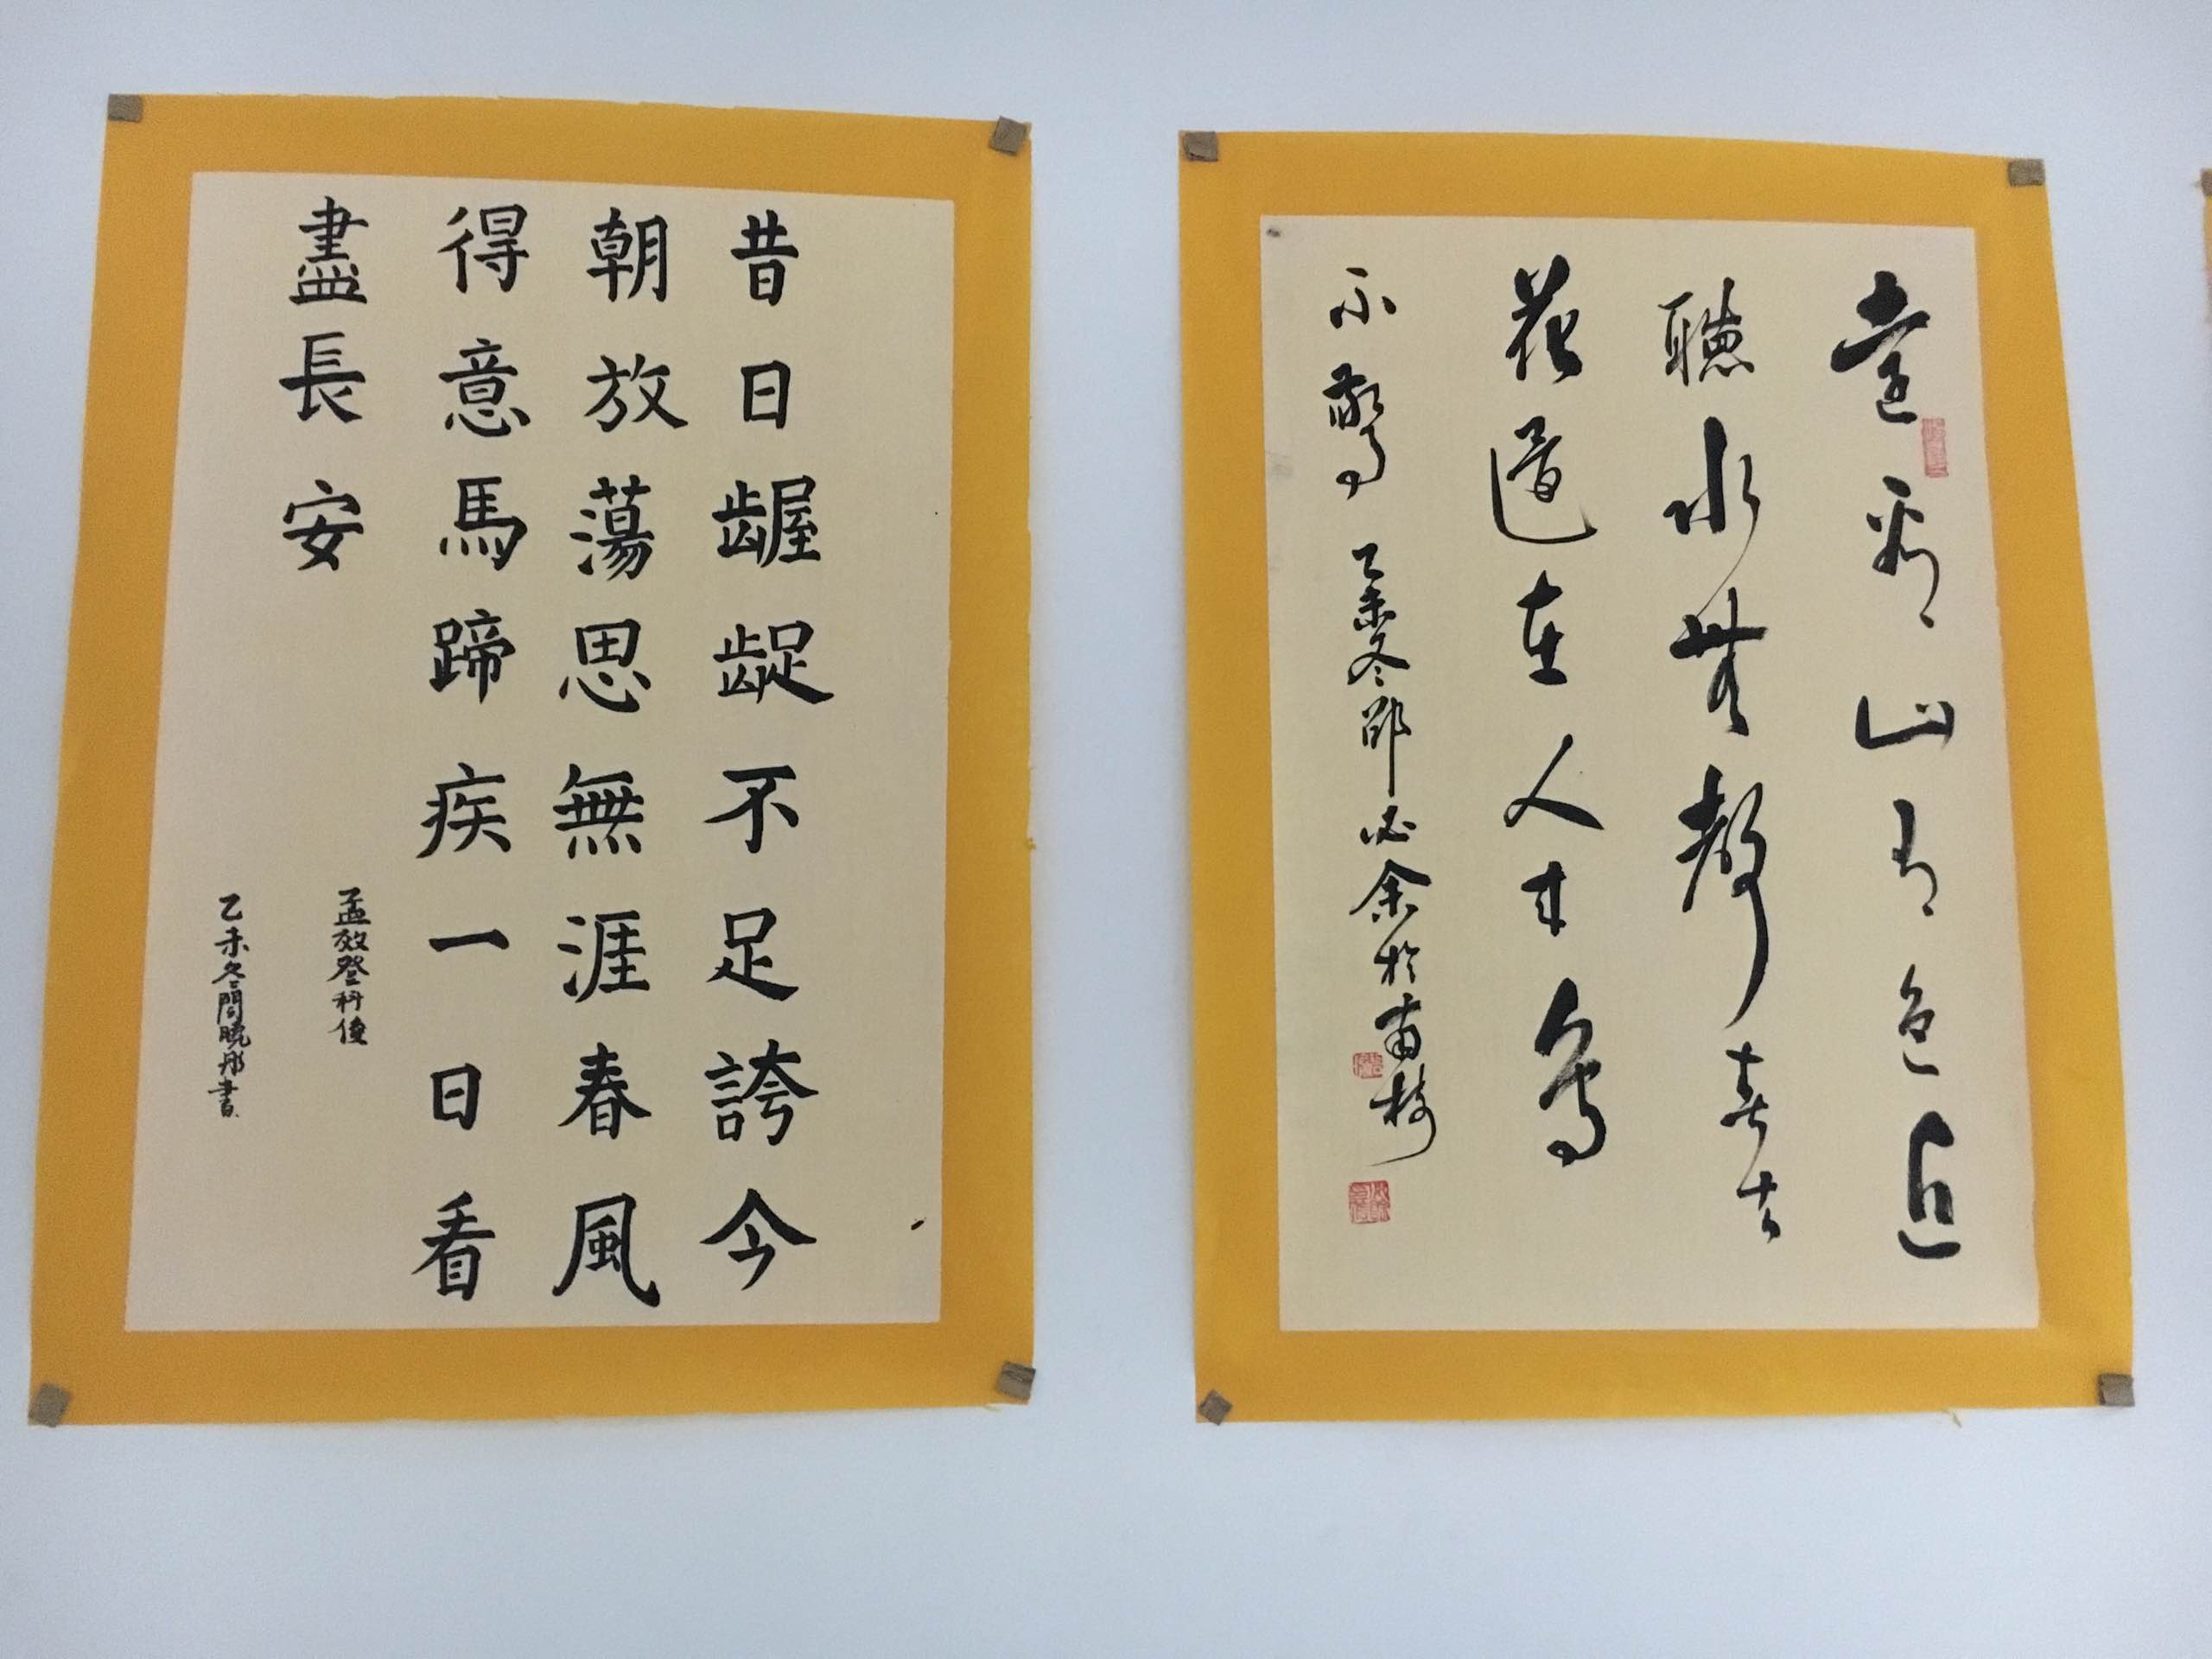 遠看山有色近
聽水無聲春去
花還在人來鳥
不驚 乙未冬邵必余於南楼
昔日龌龊不足誇今
朝放蕩思無涯春風
得意馬蹄疾一日看
盡長安
孟效登科後
乙未冬閆曉彤書